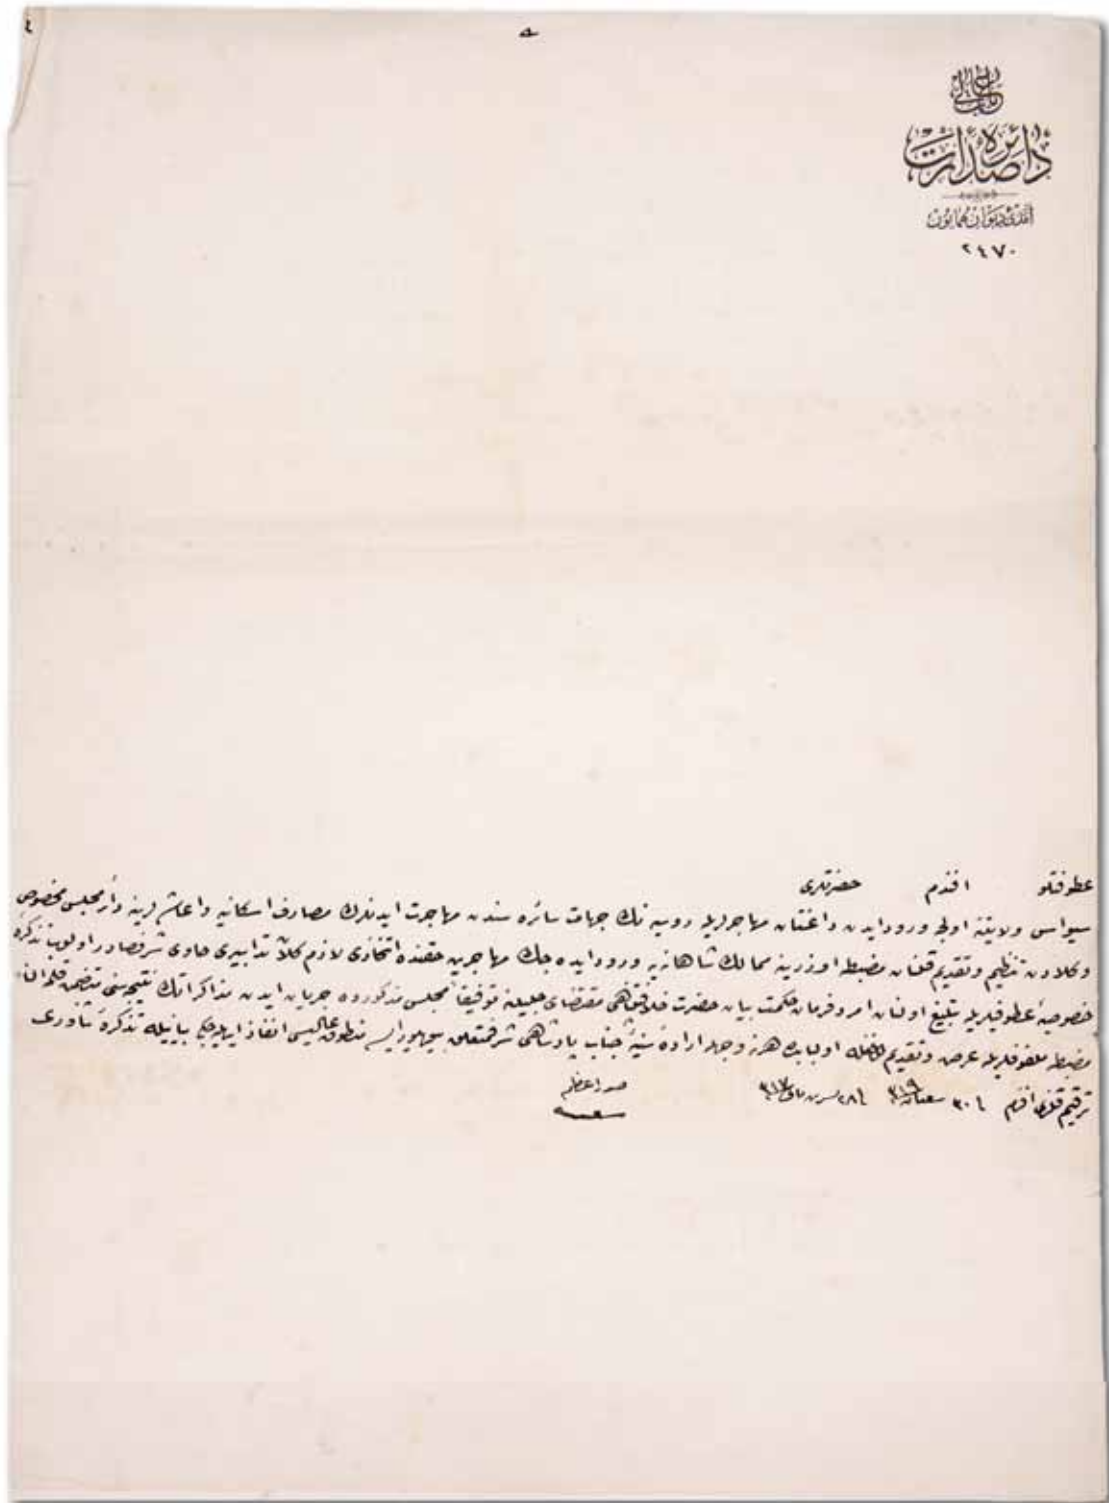 باب عالی
دائرهٔ صدارت
آمدئ دیوان همایون
٢٤٧٠
عطوفتلو افندم حضرتلری
سیواس ولایتنه اولجه ورود ایدن داغستان مهاجرلریله روسیه نك جهات سائره سندن مهاجرت ایدنلرك مصارف اسكانیه واعاشه لرینه دائر مجلس مخصوص
وكلادن تنظیم وتقدیم قلنان مضبطه اوزرینه ممالك شاهانه یه ورود ایده جك مهاجرین حقنده اتخاذی لازم كلان تدابیری حاوی شرفصادر اولوب تذكرۀ
خصوصیۀ عطوفیلریله تبلیغ اولنان امر وفرمان حكمت بیان حضرت خلافتپناهی مقتضای جلیلنه توفیقاً مجلس مذكورده جریان ایدن مذاكراتك نتیجه سنی متضمن قلمه النان
مضبطه ملفوفلریله عرض وتقدیم قلنمغله اولبابده هر نه وجهله ارادۀ سنیۀ جناب پادشاهی شرفمتعلق بیوریلور ایسه منطوق عالیسی انفاذ ایدیله جكی بیانیله تذكرۀ ثناوری
ترقیم قلندی افندم فی ٣٠ شعبان ٣١٩ فی ٢٨ تشرین ثانی ٣١٧
صدر اعظم